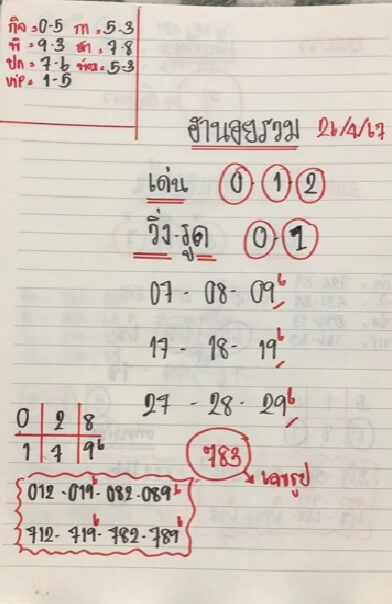 กิจ = 0-5 กา = 5-3
พิ = 9-3 สา = 7-8
ปก = 7-6 ท่อง = 5-3
vip = 1-5
ฮานอยรวม 26/4/67
เด่น 0-1-2
วิ่ง-รูด 0-1
07 - 08 - 09 6
17 - 18 - 19 6
27 - 28 - 29 6
0 2 8
1 7 9 6
783
เลขรูป
012-019 6-082-089 6
712-719 6-782-789 6